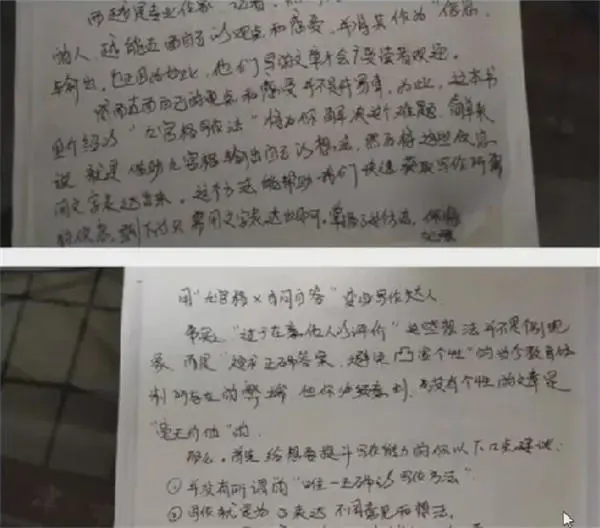 而越是专业作家、记者，
的人，越能直面自己的观点和感受，并将其作为“信息”
与输出，也正因为如此，他们写的文章才会广受读者欢迎。
然而直面自己的观点和感受并不是件易事，为此，这本书
里介绍的“九宫格写作法”将为你解决这个难题。简单来
说，就是借助九宫格输出自己的想法，然后将这些信息
用文字表达出来。这个方法能帮助我们快速获取写作所需
的信息，剩下的只需用文字表达出即可。掌握了这个方法，你将
用“九宫格×自问自答”变身写作达人
其实，“过于在意他人的评价”这些想法并不是个别现
象，而是“追求正确答案，避免凸显个性”的当今教育体
制所存在的弊端。但你必须意识到，没有个性的文章是
“毫无价值”的。
那么，首先给想要提升写作能力的你以下几点建议：
①并没有所谓的“唯一正确的写作方法”
②写作就是为了表达不同意见和想法。